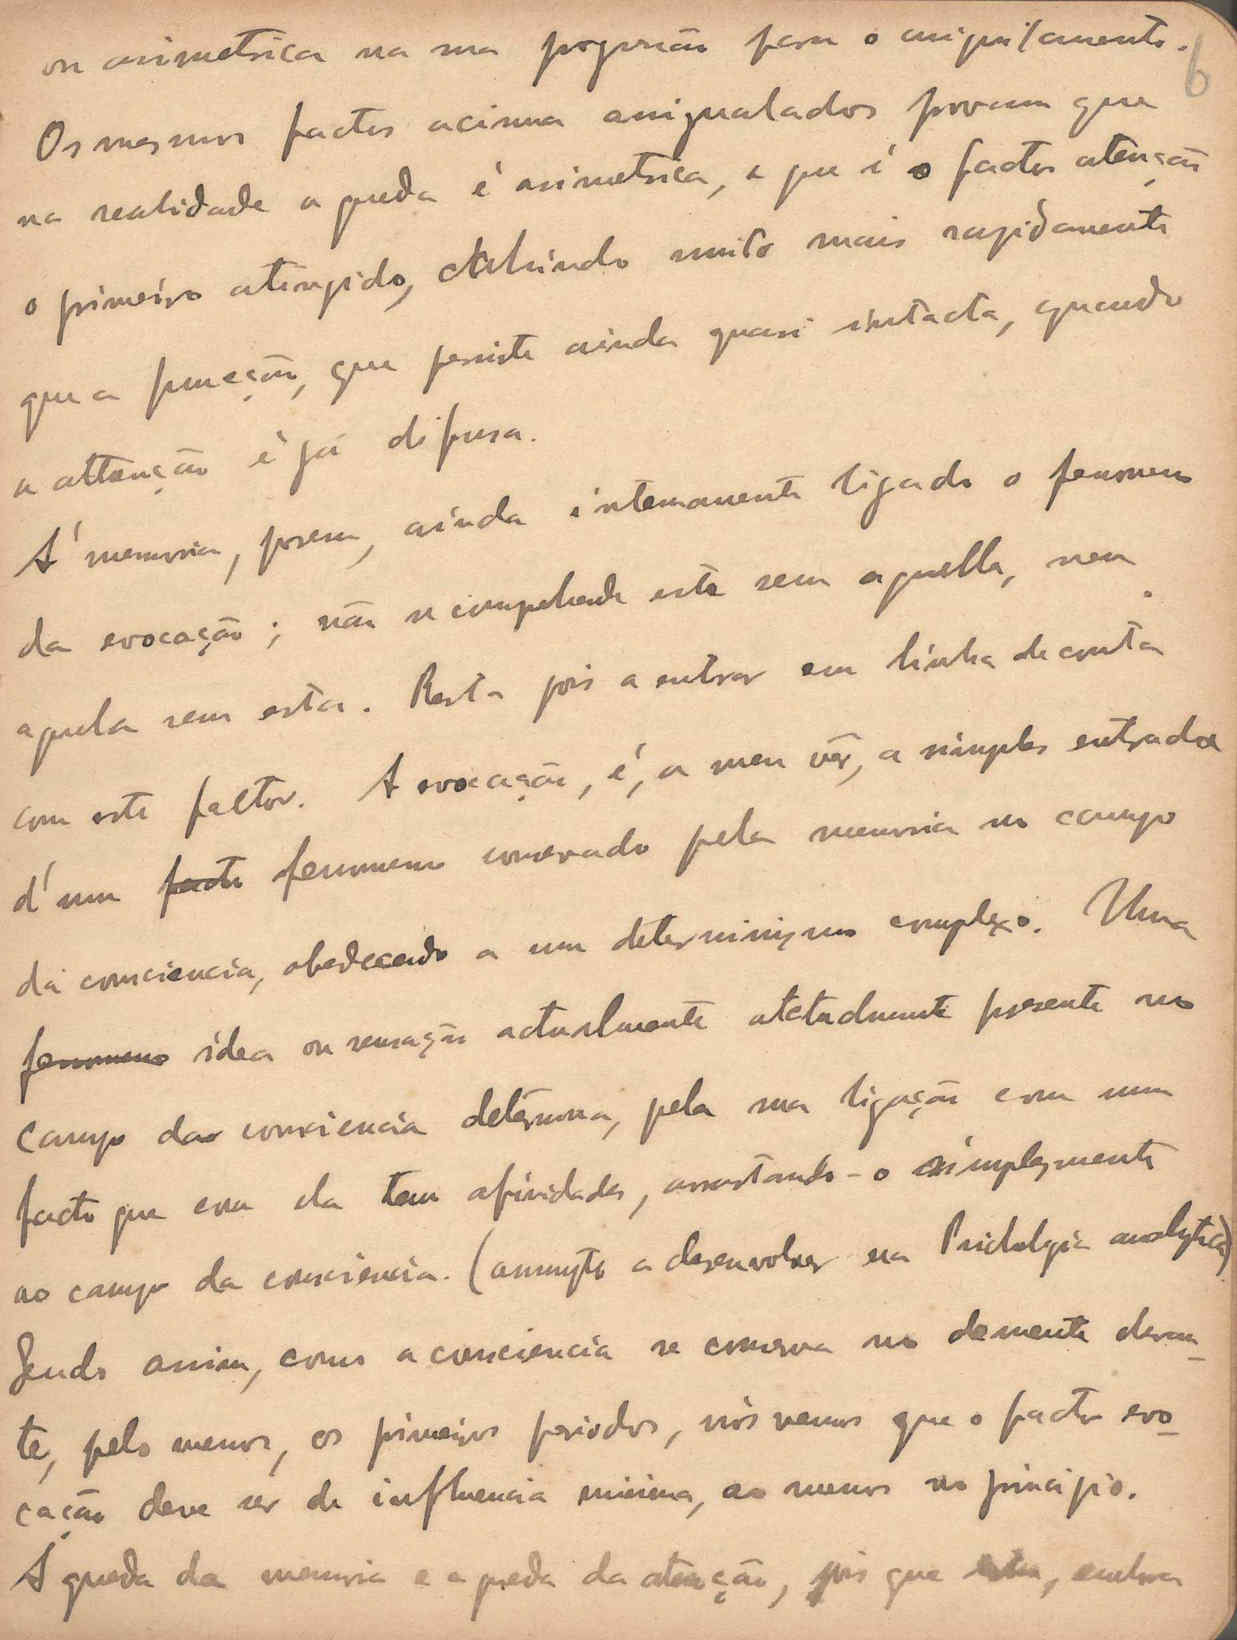 ou asimetrica na sua progressão para o aniquilamento.
6
Os mesmos factos acima assignalados provam que
na realidade a queda é asimetrica, e que é o factor atenção
o primeiro atingido, muito mais rapidamente
que a funcção, que persiste ainda quasi intacta, quando
a attenção é já difusa.
Á memoria, porem, ainda intemamente ligado o fenomeno
da evocação; não se comprehende este sem aquella, nem
aquela sem esta. Resta pois a entrar em linha de conta
com este factor. A evocação, é, a meu vêr, a simples entrada
d'um facto fenomeno conservado pela memoria no campo
da consciencia, obedecendo a um determinismo complexo. Uma
fenomeno idea ou sensação actualmente presente no
campo da consciencia determina, pela sua ligação com um
facto que com ela tem afinidades, arrastando-o simplesmente
ao campo da consciencia. (assumpto a desenvolver na Psicologia analytica)
Sendo assim, como a consciencia se conserva no demente duran-
te, pelo menos, os primeiros periodos, nós vemos que o factor evo-
cação deve ser de influencia minima, ao menos no principio.
A queda da memoria e a queda da atenção, pois que esta, embora